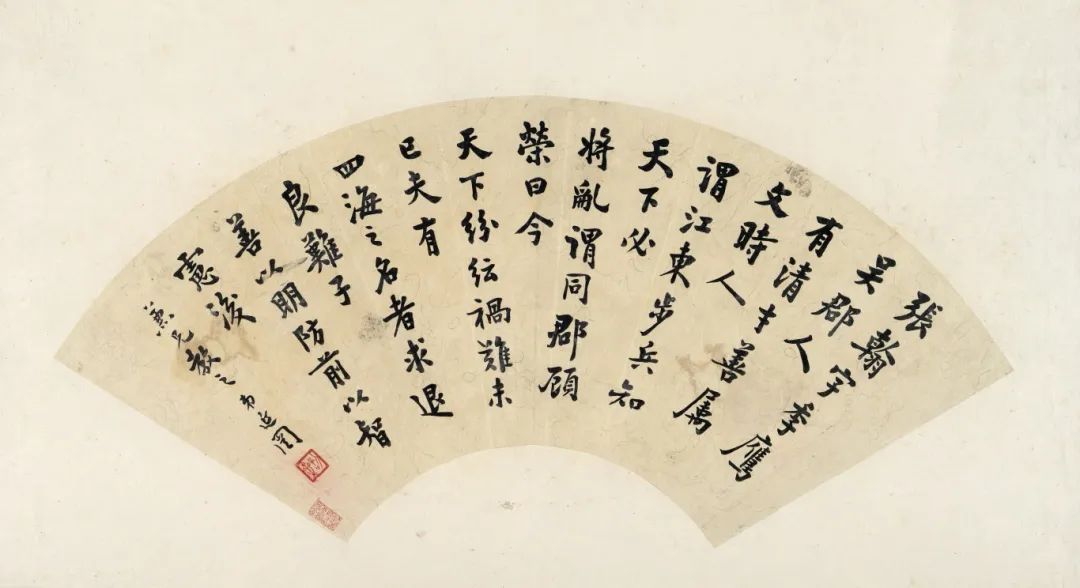 張翰字季鷹
吳郡人
有清才善属
文時人
謂江東步兵知
天下必
將亂謂同郡顾
榮曰今
天下紛紜禍難未
已夫有
四海之名者求退
良難子
善以明防前以智
慮後
兄教之 弟延闓